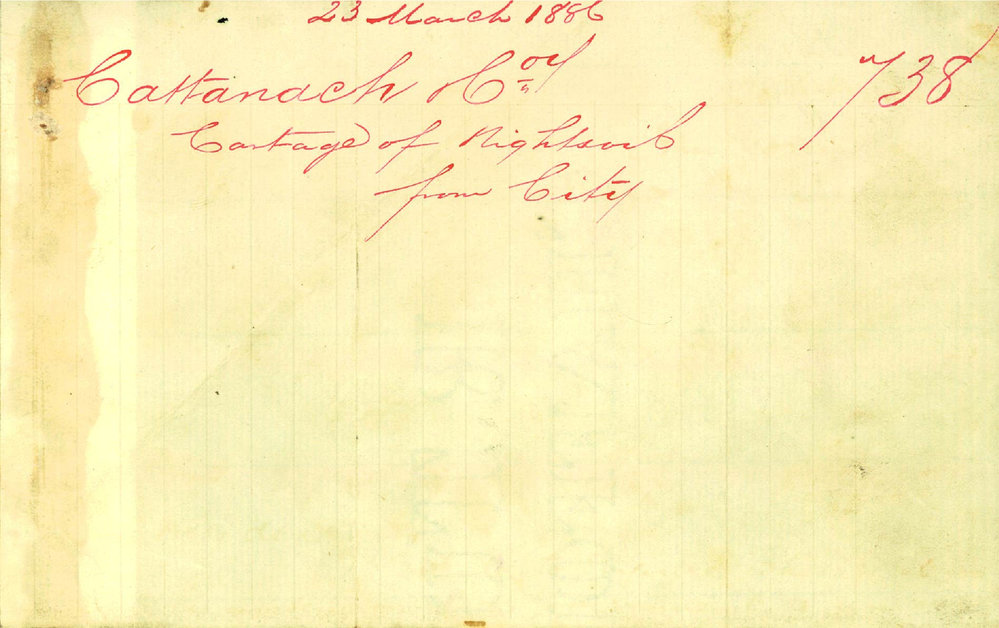 23 March 1886
Cattanach & Coy 738
Cartage of Nightsoil
from City